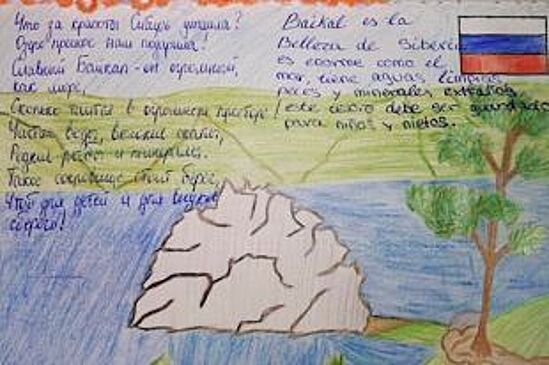 Что за красоты Сибирь
Озеро нам подарила!
Славный Байкал - он огромный,
как море,
Сколько в огромном просторе!
Чистые воды, великие скалы,
Редкие и минералы.
Такое сокровище стоит беречь,
Чтоб для детей и для внуков
!
Baikal es la
Belleza de Siberia
es enorme como el
mar, tiene aguas limpias,
peces y minerales extraños.
¡este debe ser guardado
para niños y nietos.